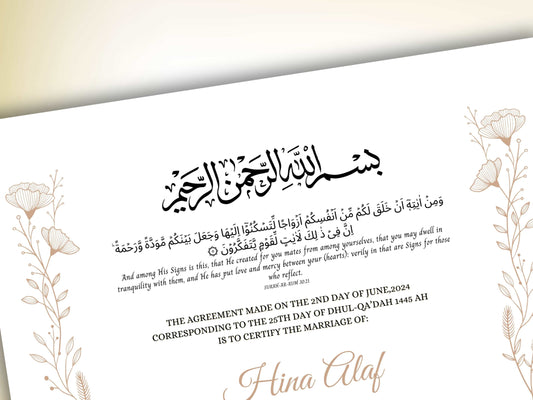 بسم الله الرحمن الرحيم
وَمِنْ اٰيٰتِهٖٓ اَنْ خَلَقَ لَكُمْ مِّنْ اَنْفُسِكُمْ اَزْوَاجًا لِّتَسْكُنُوْٓا اِلَيْهَا وَجَعَلَ بَيْنَكُمْ مَّوَدَّةً وَّرَحْمَةً ۗ
اِنَّ فِيْ ذٰلِكَ لَاٰيٰتٍ لِّقَوْمٍ يَّتَفَكَّرُوْنَ
And among His Signs is this, that He created for you mates from among yourselves, that you may dwell in
tranquility with them, and He has put love and mercy between your (hearts): verily in that are Signs for those
who reflect.
SURAH AR-RUM 30:21
THE AGREEMENT MADE ON THE 2ND DAY OF JUNE,2024
CORRESPONDING TO THE 25TH DAY OF DHUL-QA'DAH 1445 AH
IS TO CERTIFY THE MARRIAGE OF:
Hina Alaf